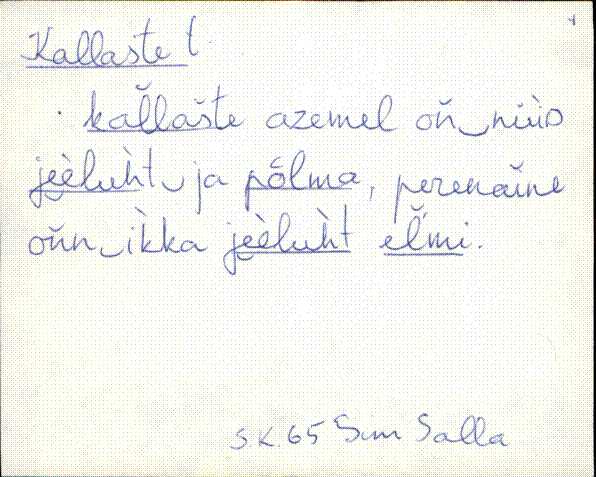 Kallaste t.
kal̆lašte azemel oň‿nüid
jèèluh̀t‿ja põlma, perenaĭne
oňn‿ìkka jèèluh̀t el̆mi.
SK 65 Sim Salla